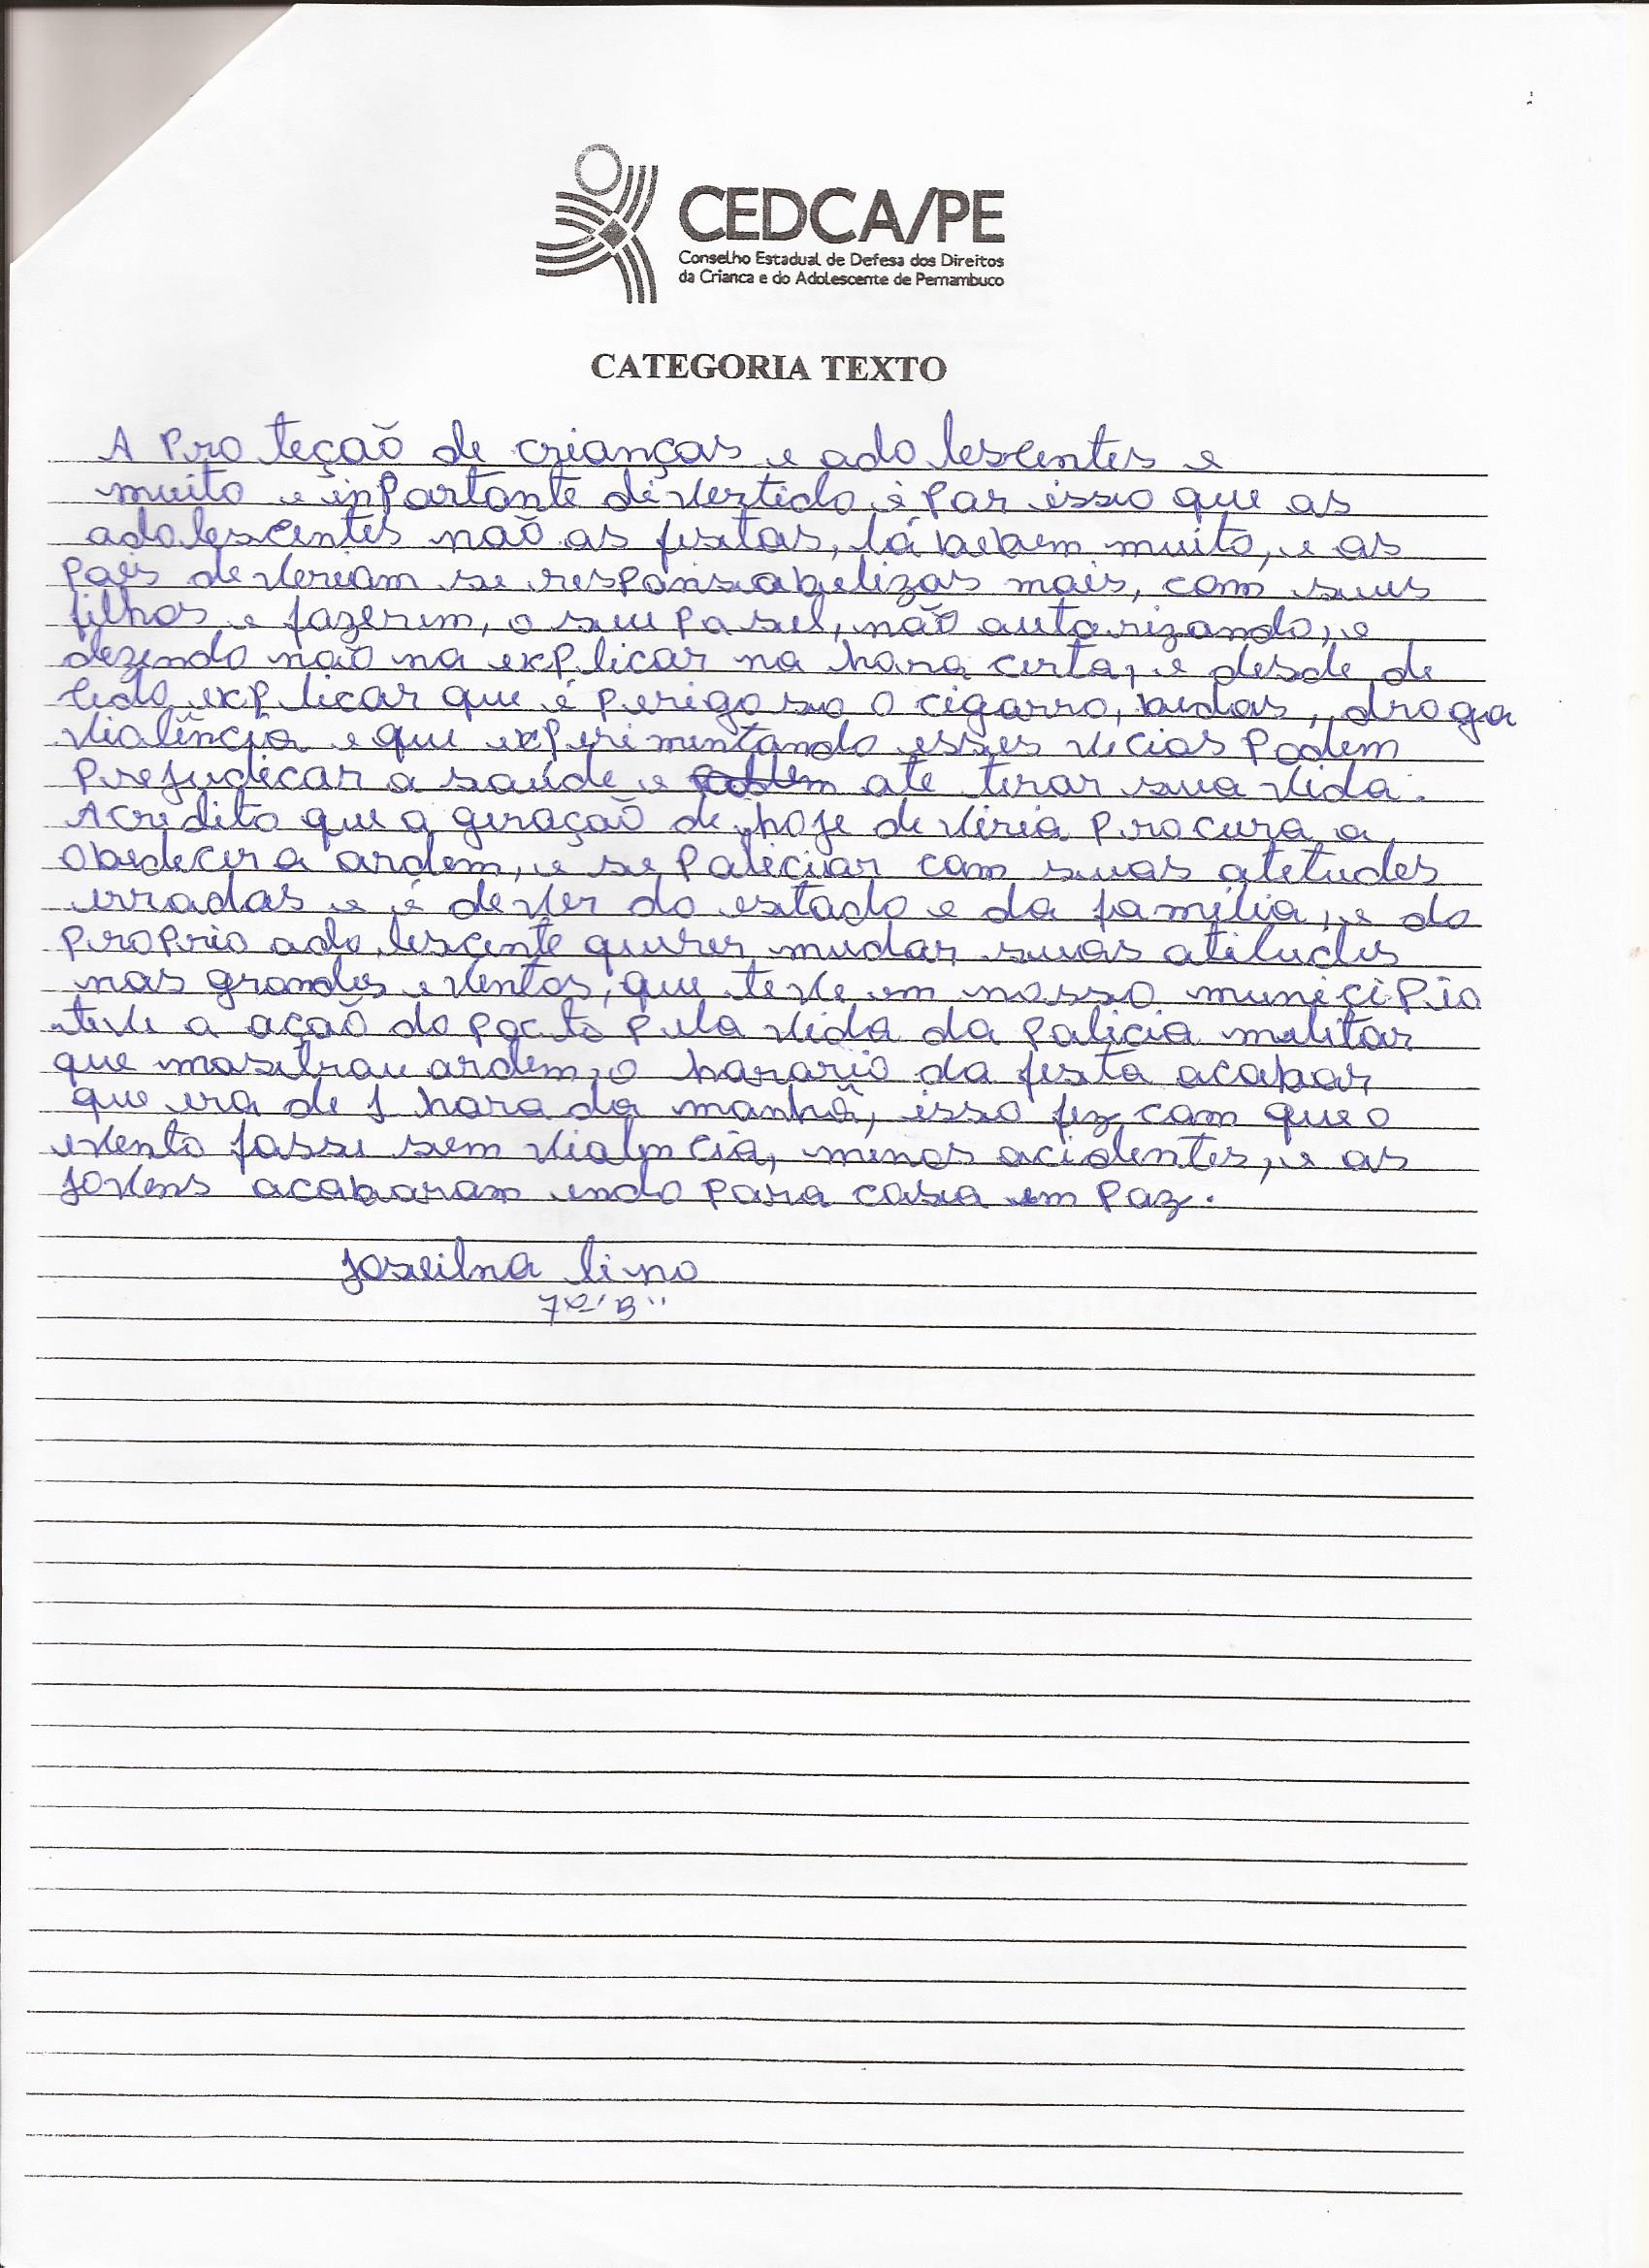 CEDCA/PE
Conselho Estadual de Defesa dos Direitos
da Crianca e do Adolescente de Pernambuco
CATEGORIA TEXTO
A Proteção de crianças e adolescentes e
muito e inportante divertido é por isso que os
adolescentes não as festas, lá bebem muito, e os
pais deveriam se responsabelizas mais, com seus
filhos e fazerem, o seu pasel, não autorizando, e
dezendo não na explicar na hora certa, e desde de
cedo explicar que é perigoso o cigarro, bedas, droga
violência e que experimentando esses vicios podem
prejudicar a saúde e podem ate tirar sua vida.
Acredito que a geração de hoje deviria procura a
obedecer a ordem, e se policiar com suas atetudes
erradas e é dever do estado e da família, e do
proprio adolescente querer mudar suas atitudes
nos grandes eventos, que teve em nosso município
teve a ação do pacto pela vida da policia militar
que mostrou ordem, o horario da festa acabar,
que era de 1 hora da manhã, isso fez com que o
evento fosse sem violencia, menos acidentes, e os
jovens acabaram indo para casa em paz.
Joseilna lino
7ª "B"